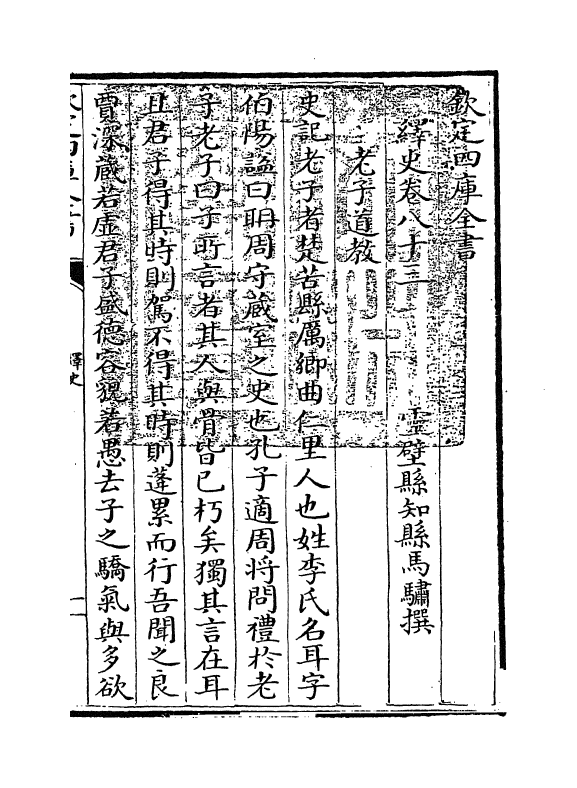 欽定四庫全書
繹史卷八十三
靈壁縣知縣馬驌撰
老子道教
史記老子者楚苦縣厲鄉曲仁里人也姓李氏名耳字
伯陽諡曰耼周守蔵室之史也孔子適周将問禮於老
子老子曰子所言者其人與骨皆已朽矣獨其言在耳
且君子得其時則駕不得其時則蓬累而行吾聞之良
賈深蔵若虚君子盛德容貌若愚去子之驕氣與多欲
繹史